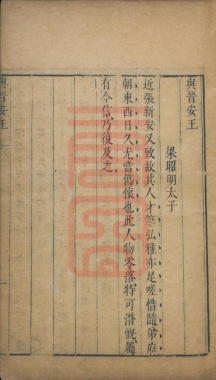 與晉安王
梁昭明太子
近張新安又致故其人才筆弘雅亦足嗟惜隨弟府
朝東西日久尤當傷懷也此人物零落特可潸慨屬
有今信乃復及之
與晉安王